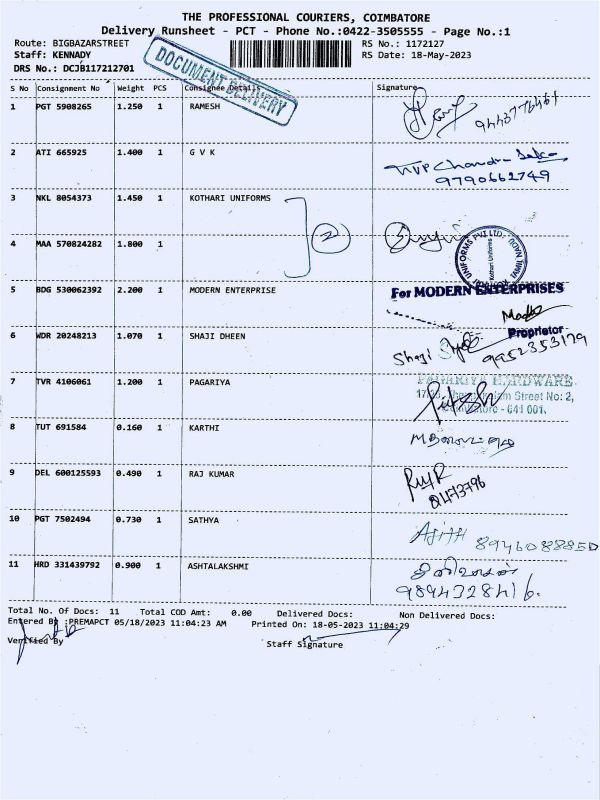 THE PROFESSIONAL COURIERS, COIMBATORE
Delivery Runsheet - PCT - Phone No.:0422-3505555 - Page No.:1
Route: BIGBAZARSTREET RS No.: 1172127
Staff: KENNADY RS Date: 18-May-2023
DRS No.: DCJB117212701
DOCUMENT DELIVERY
S No Consignment No Weight PCS Consignee Details Signature
1 PGT 5908265 1.250 1 RAMESH
2 ATI 665925 1.400 1 G V K
9790662749
3 NKL 8054373 1.450 1 KOTHARI UNIFORMS
2
4 MAA 570824282 1.800 1
UNIFORMS PVT LTD.
Kothari Uniforms
TAMIL NADU
5 BDG 530062392 2.200 1 MODERN ENTERPRISE For MODERN ENTERPRISES
Proprietor
6 WDR 20248213 1.070 1 SHAJI DHEEN Shaji
9952353179
7 TVR 4106061 1.200 1 PAGARIYA PAGARIYA HARDWARE
Street No: 2,
Coimbatore - 641 001.
8 TUT 691584 0.160 1 KARTHI
9 DEL 600125593 0.490 1 RAJ KUMAR
10 PGT 7502494 0.730 1 SATHYA
Ajith 8946088850
11 HRD 331439792 0.900 1 ASHTALAKSHMI
9894328416.
Total No. Of Docs: 11 Total COD Amt: 0.00 Delivered Docs: Non Delivered Docs:
Entered By :PREMAPCT 05/18/2023 11:04:23 AM Printed On: 18-05-2023 11:04:29
Verified By Staff Signature